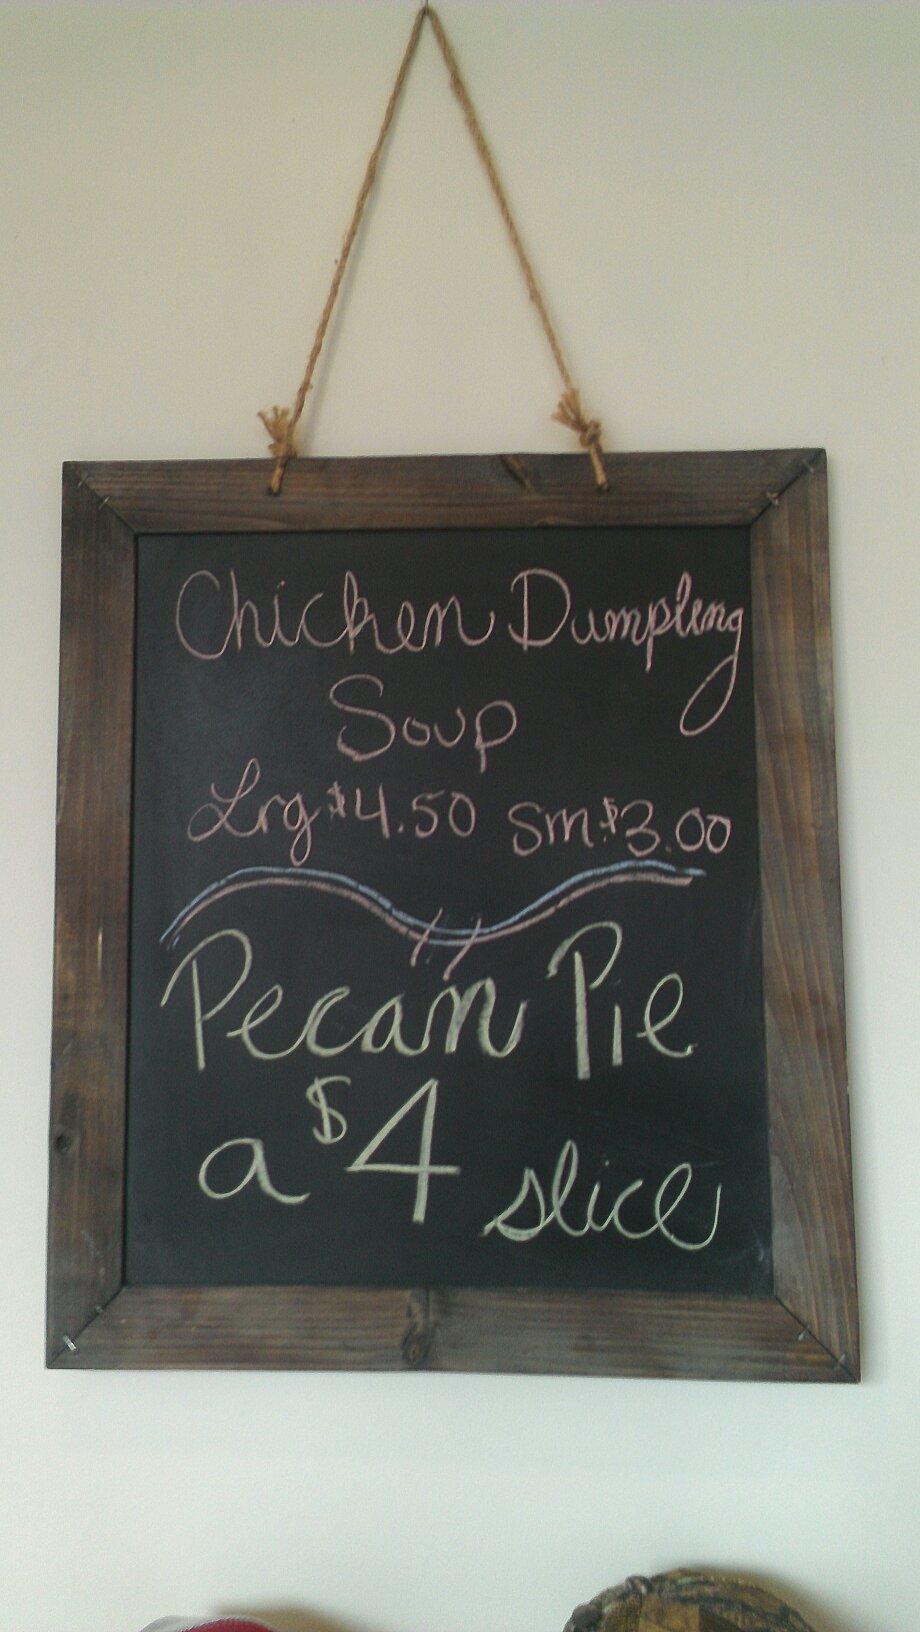 Chicken Dumpling
Soup
Lrg $4.50 Sm $3.00
Pecan Pie
a $4 slice